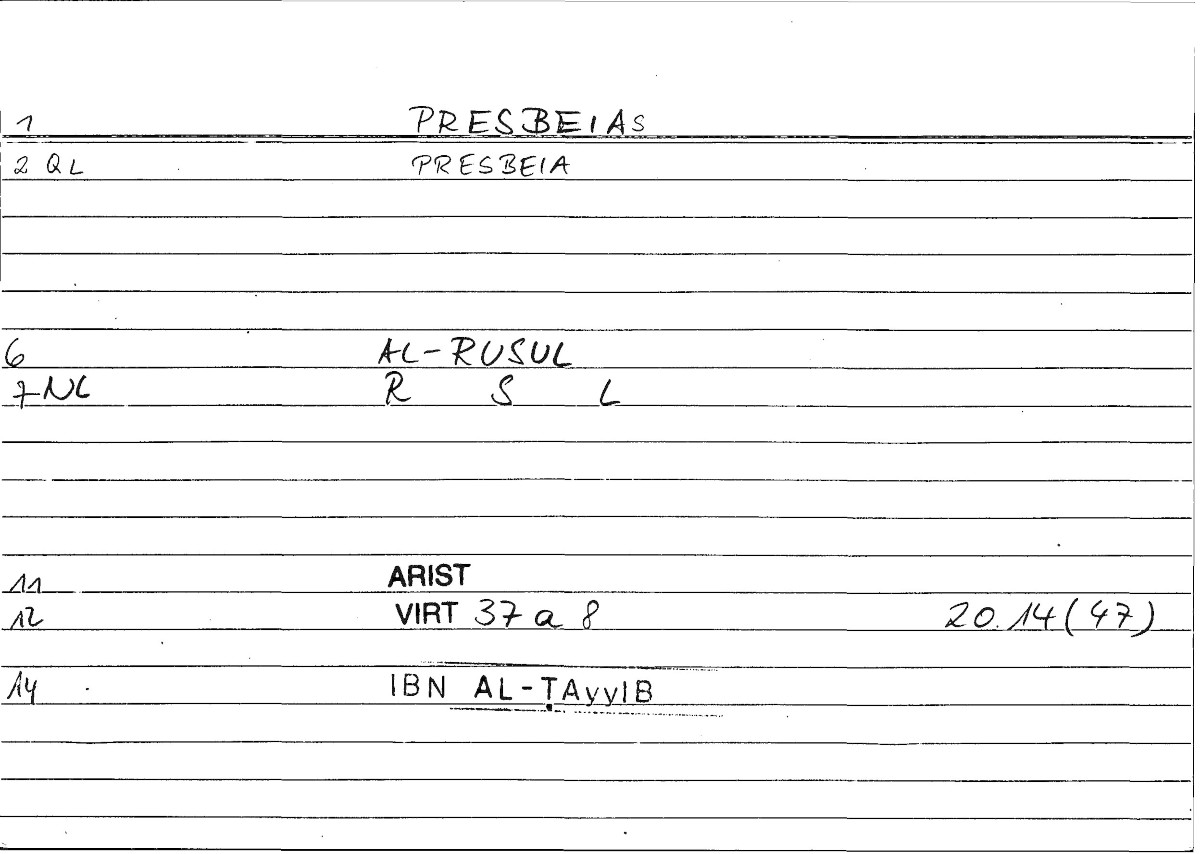 1 PRESBEIAS
2 QL PRESBEIA
6 AL-RUSUL
7 NL R S L
11 ARIST
12 VIRT 37 a 8 20.14 (47)
14 IBN AL-ṬAyyIB